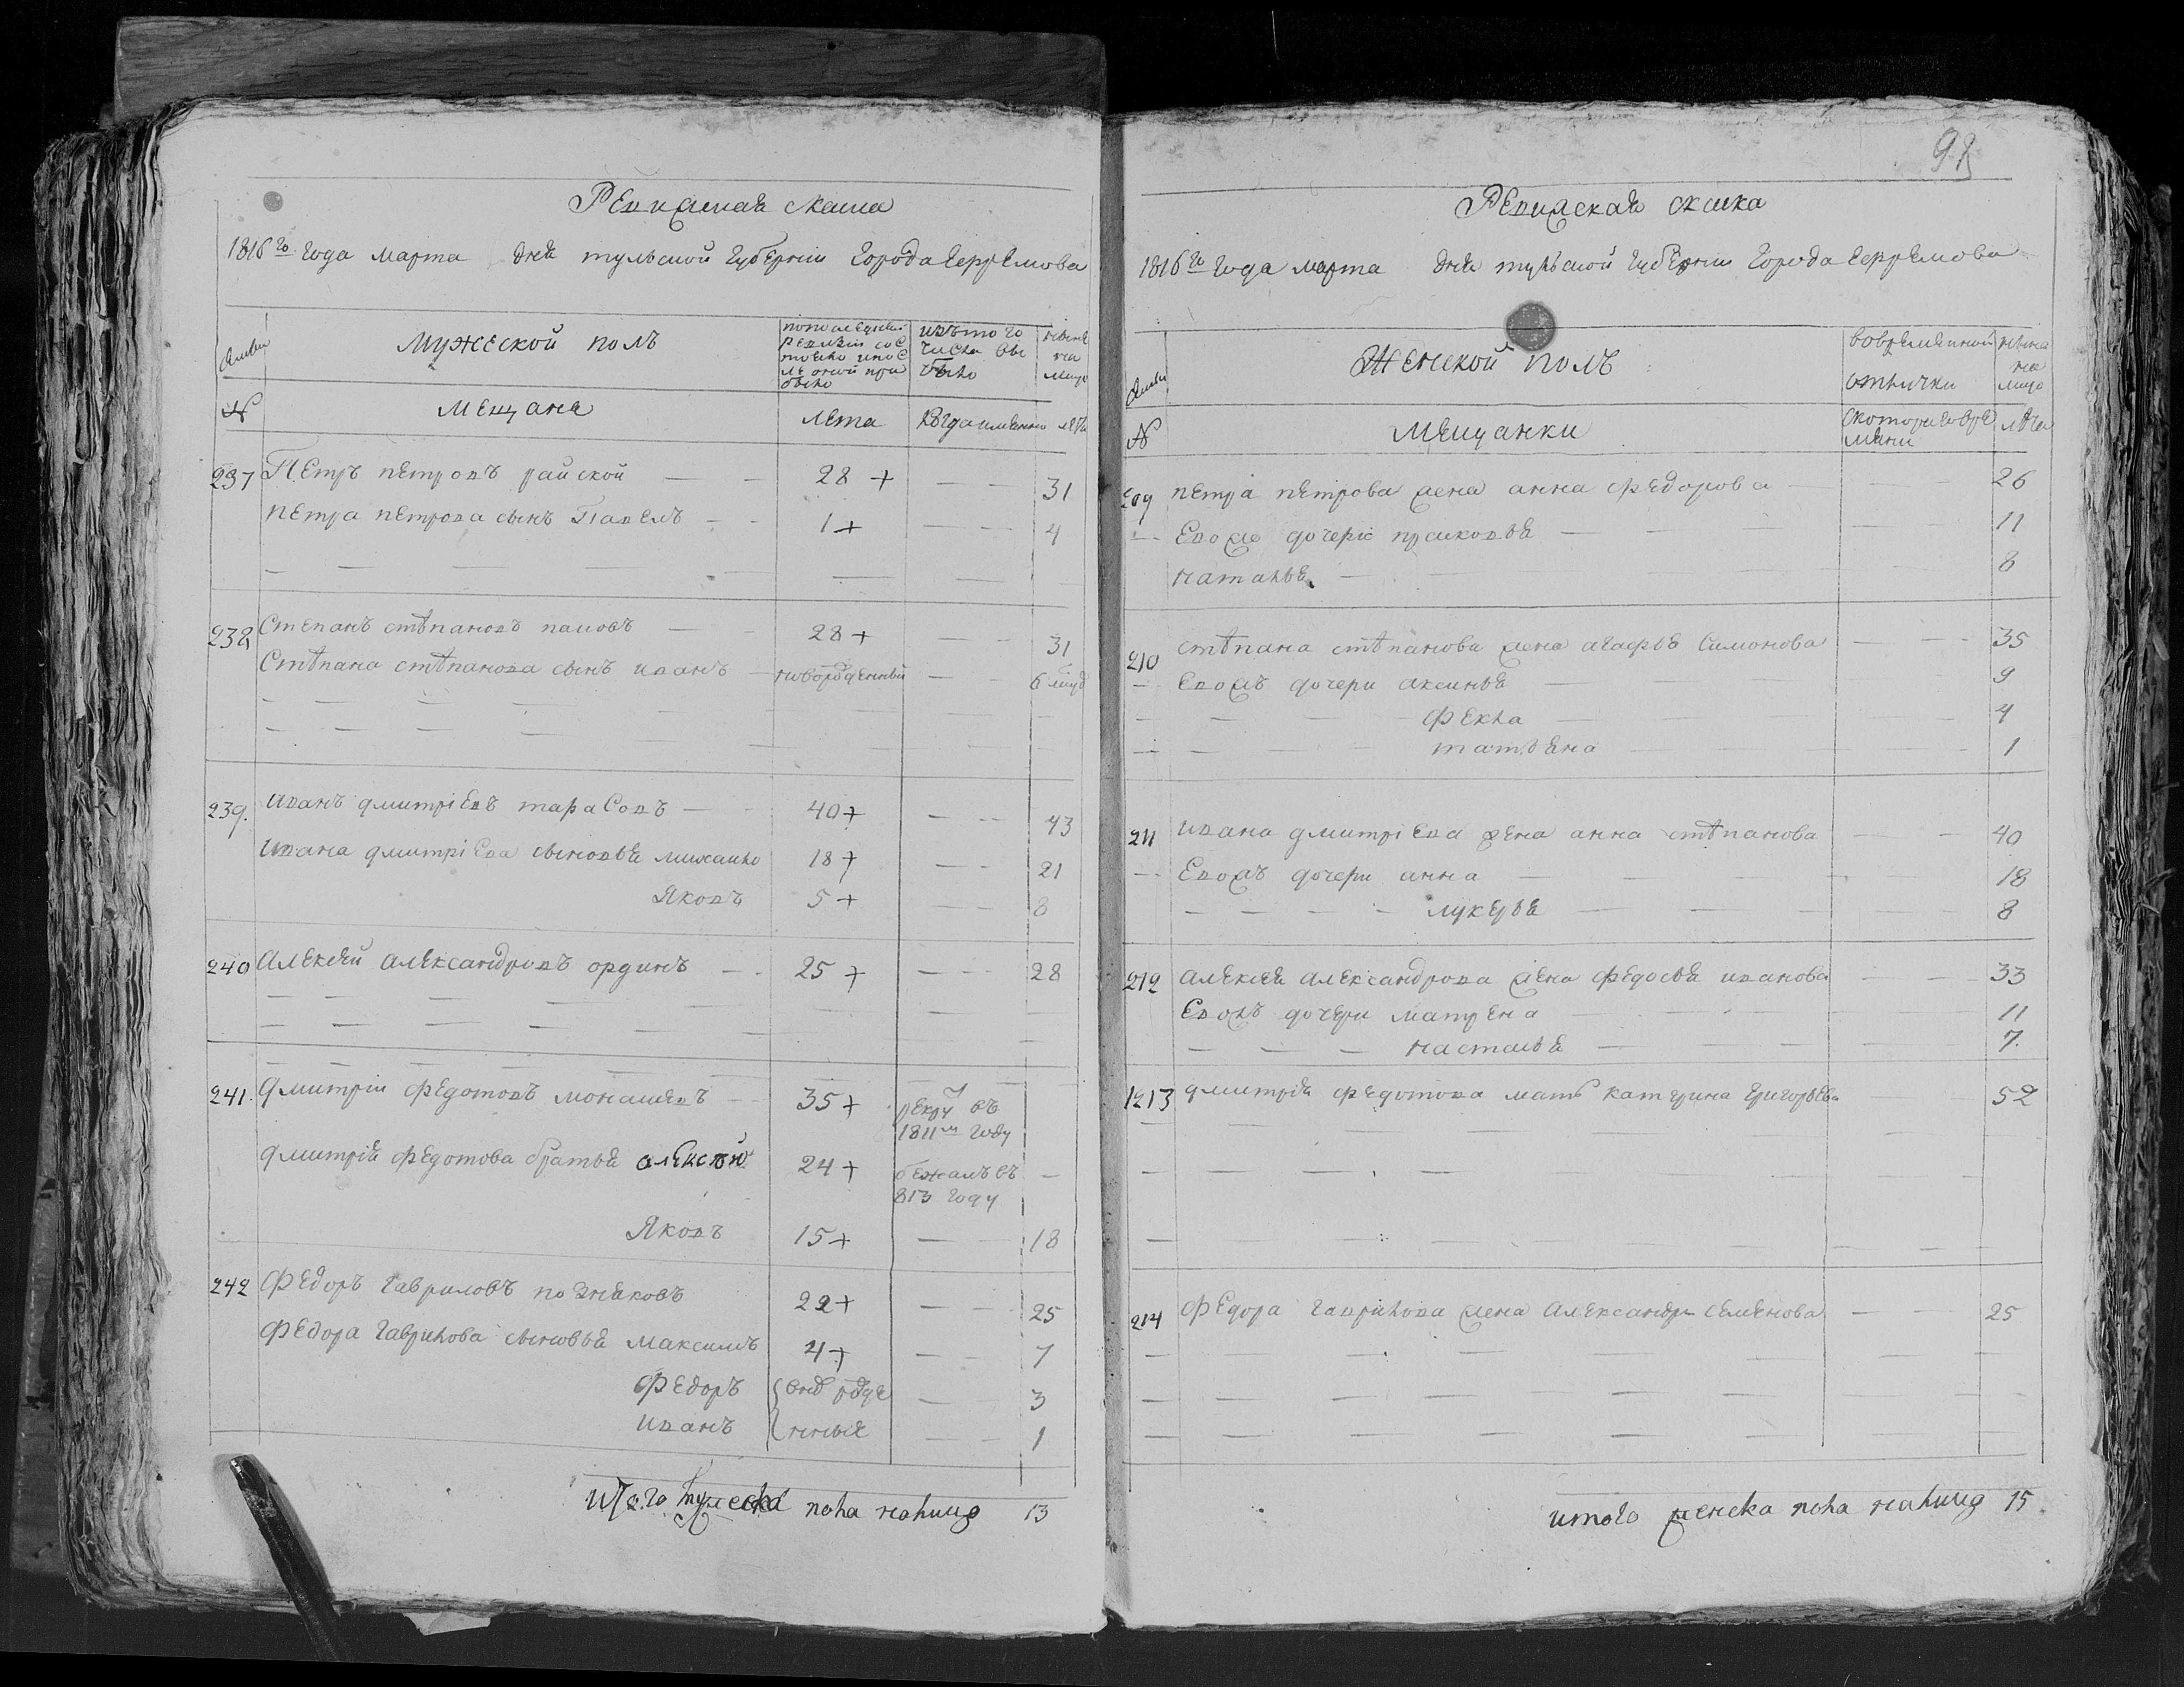 Ревизская скаска
1816го года марта дня тульской губернии города Ефремова
семьи
мужеской полъ
по последней
ревизии сос
тояло и пос
ле оной при
было
изъ того
числа вы
было
ныне
на
лицо
№
мещане
лета
когда именно
лета
237 Петръ петровъ райской — — 28 + — — 31
петра петрова сынъ Павелъ — — 1 + — — 4
238 Степанъ стѣпановъ поповъ — — 28 + — — 31
Стѣпана стѣпанова сынъ иванъ — новорожденный — — 6 мцъ
239. иванъ дмитріевъ тарасовъ — — 40 + — — 43
ивана дмитріева сыновья михаило 18 + — — 21
Яковъ 5 + — — 8
240 Алексей александровъ ординъ — — 25 + — — 28
241. Дмитріи федотовъ монашевъ — — 35 + рекру въ
1811м году
дмитрія федотова братья алексѣй 24 + бежалъ въ —
813 году
Яковъ 15 + — — 18
242 Федоръ гавриловъ позняковъ 22 + — — 25
Федора гаврилова сыновья максимъ 4 + — — 7
Федоръ { вно рожде — — 3
иванъ { нныя — — 1
итого мужеска пола налицо 13
93
Ревизская скаска
1816го года марта дня тульской губернии города Ефремова
семьи
Женской полъ
вовременной
отлучки
ныне
на
лицо
№
Мещанки
скоторого вре
мени
лѣта
209 петра петрова жена анна федорова — — 26
— Евоже дочери прасковья — — 11
наталья — — 8
210 стѣпана стѣпанова жена агафья Симонова — — 35
— Евожъ дочери аксинья — — 9
— — — Фекла — — 4
— — — татьяна — — 1
211 ивана дмитріева жена анна стѣпанова — — 40
— Евожъ дочери анна — — 18
— — — — лукерья — — 8
212 алексея александрова жена федосья иванова — — 33
Евожъ дочери матрена — — 11
— — — настасья — — 7.
1213 дмитрія федотова мать катерина григорьева 52
214 Федора гаврилова жена Александра семенова — — 25
итого женска пола налицо 15